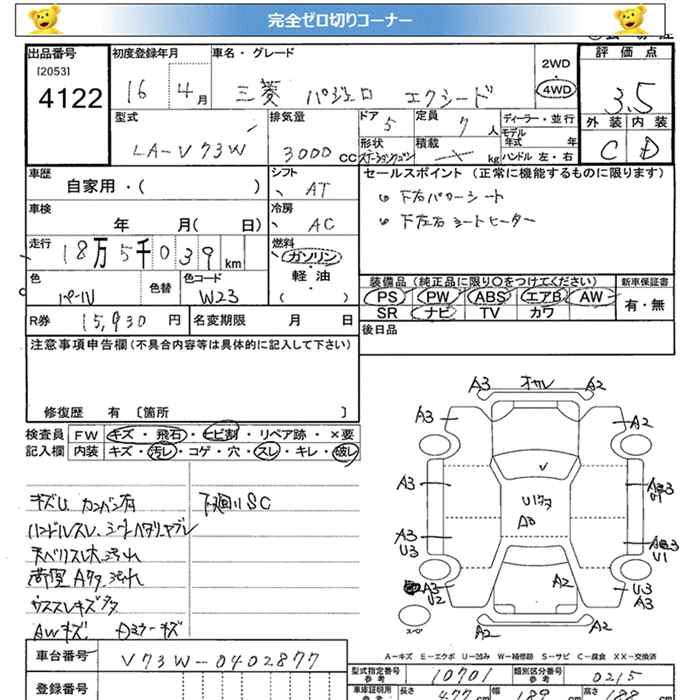 完全ゼロ切りコーナー
出品番号
[2053]
4122
初度登録年月
16 4月
車名・グレード
三菱 パジェロ エクシード
2WD
・
4WD
評価点
3.5
外装 内装
C D
型式
LA-V73W
排気量
3000 CC
ドア
5
定員
7 人
形状
ステーションワゴン
積載
kg
ディーラー・並行
モデル
年式 年
ハンドル 左・右
車歴
自家用・( )
シフト
AT
セールスポイント (正常に機能するものに限ります)
下右パワーシート
下左右シートヒーター
車検
年 月( 日)
冷房
AC
走行
18万5千039 km
燃料
ガソリン
・
軽油
( )
色
パール
色替
色コード
W23
装備品(純正品に限り○をつけてください)
PS PW ABS エアB AW
SR ナビ TV カワ
新車保証書
有・無
R券 15,930 円
名変期限 月 日
後日品
注意事項申告欄(不具合内容等は具体的に記入して下さい)
修復歴 有 [箇所 ]
検査員 FW キズ・飛石・ヒビ割・リペア跡・×要
記入欄 内装 キズ・汚レ・コゲ・穴・スレ・キレ・破レ
キズU カンバン有 下廻りSC
ハンドルスレ、シートヘタリヤブレ
天ベリスレ大、汚れ
荷室 Aタタ、汚れ
ウススレキズタタ
AWキズ Dミラーキズ
A3 オカレ A2
A3 A2
A3
U1タタ
A3
U3
U1
U2
A2
U3
A3
スペア
A2 A2
A-キズ E-エクボ U-凹み W-補修跡 S-サビ C-腐食 XX-交換済
車台番号 V73W-0402877
登録番号
型式指定番号
参考
10701
類別区分番号
参考
0215
車庫証明用
参考
長さ 477 cm 幅 189 cm 高さ 188 cm